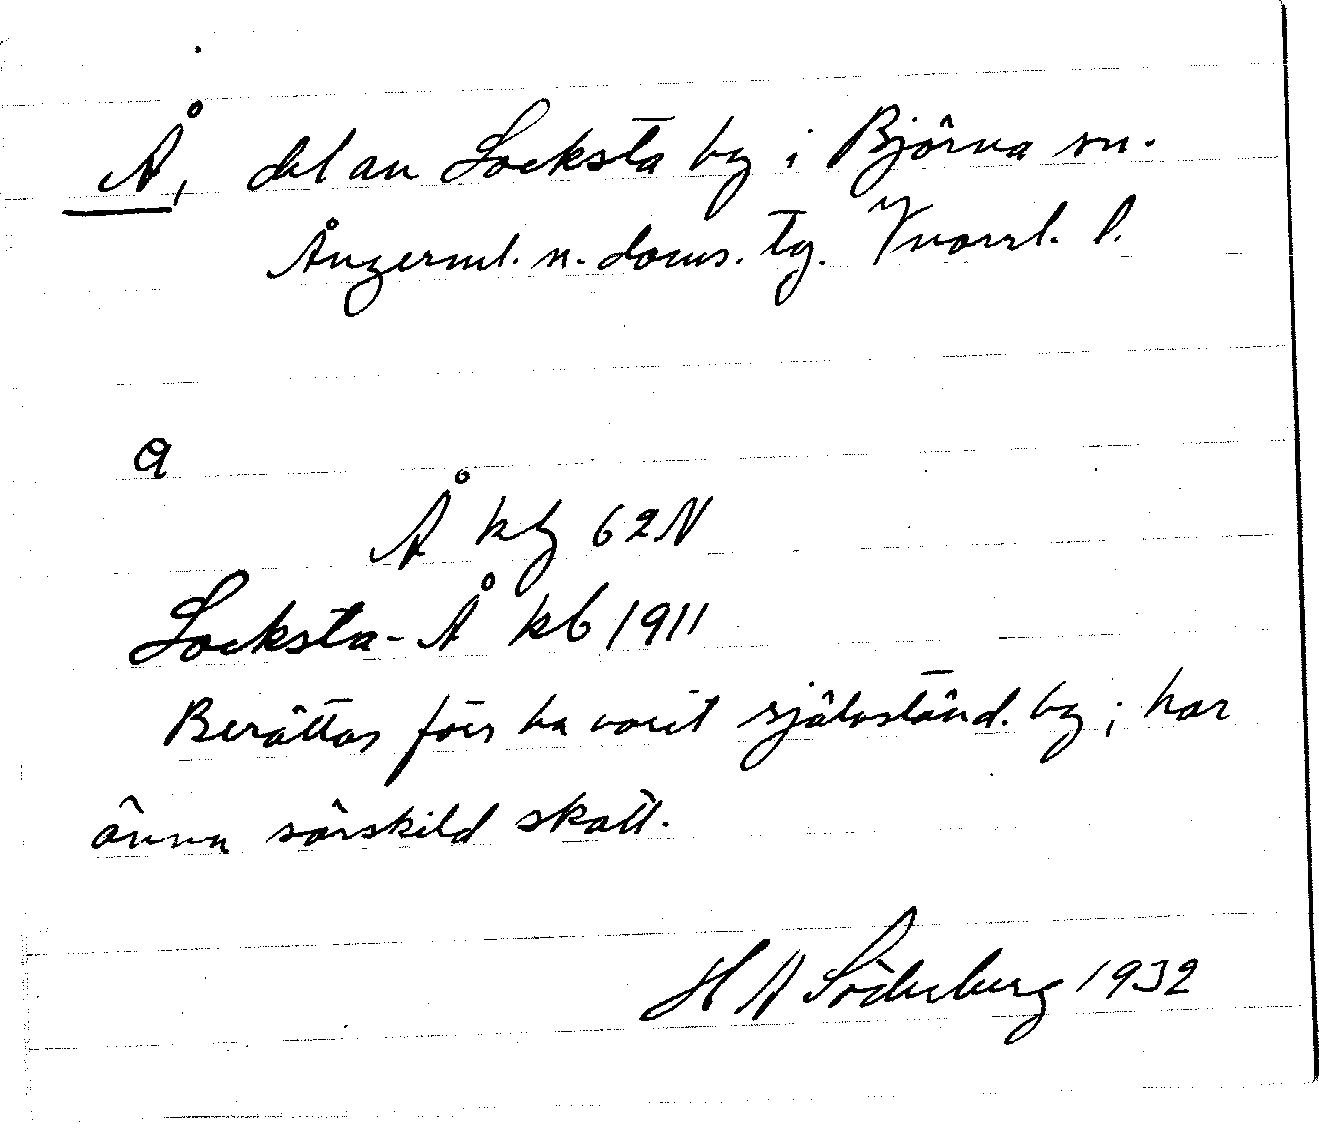 Å, del av Locksta by i Björna sn.
Ångerml. n. doms. tg. Vnorrl. l.
a
Å kb 62 N
Locksta-Å kb 1911
Berättas förr ha varit självständ. by; har
ännu särskild skatt.
H A Söderberg 1932